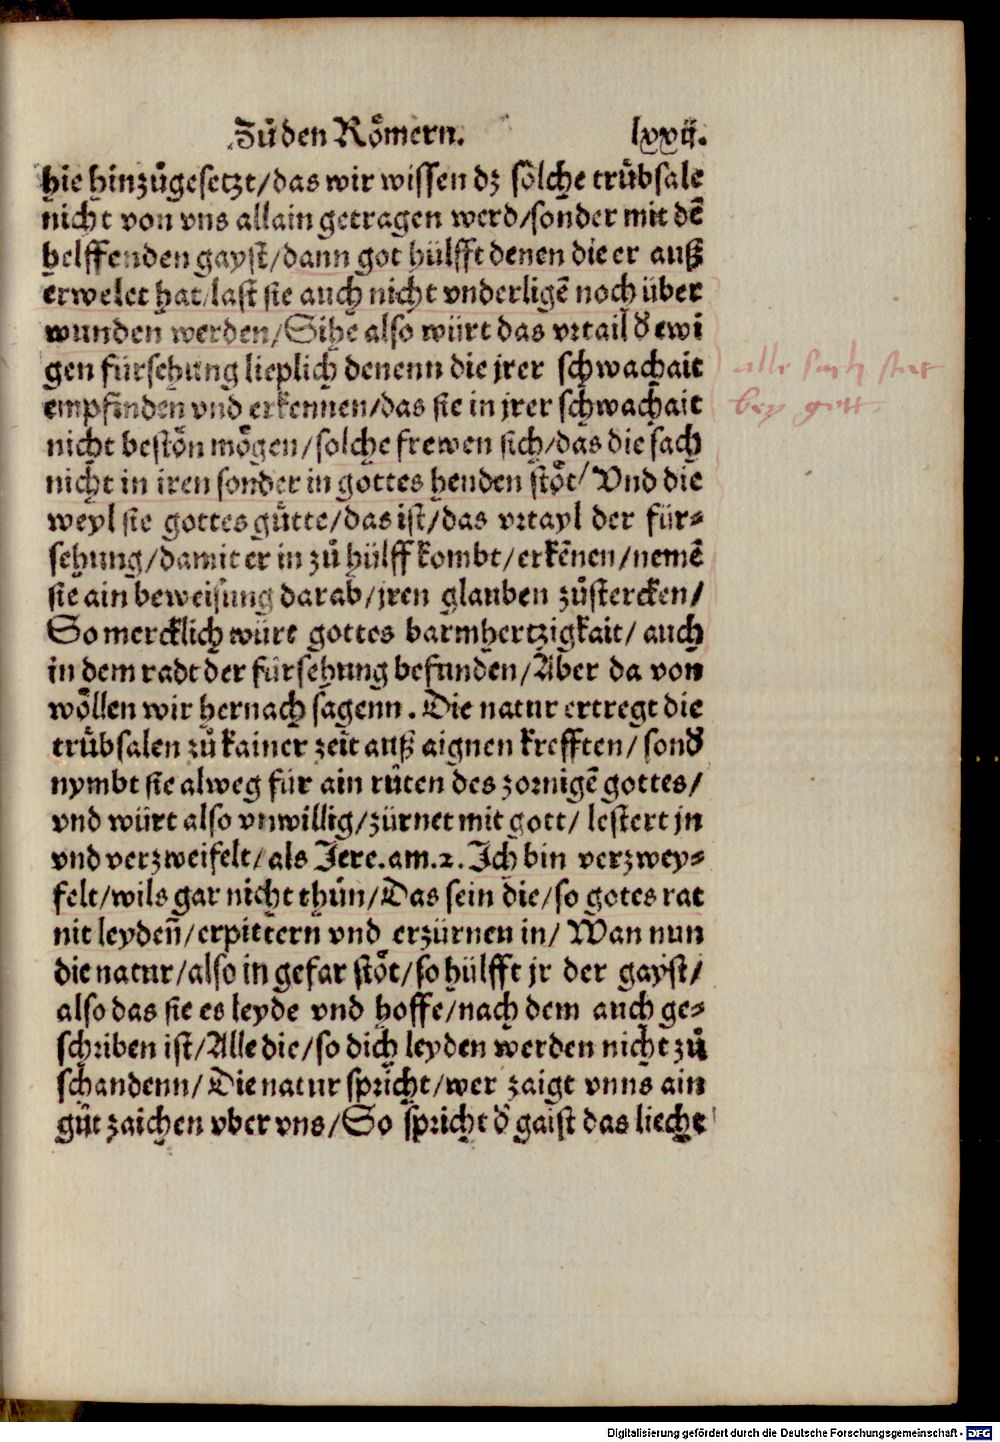 Zů den Römern. lxxij.
hie hinzůgesetzt/das wir wissen dz sölche trůbsale
nicht von vns allain getragen werd/sonder mit dē
helffenden gayst/dann got hülfft denen die er auß
erwelet hat/last sie auch nicht vnderligē noch über
wunden werden/Sihe also würt das vrtail d̕ ewi
gen fürsehung lieplich denenn die jrer schwachait
alle sach stet
empfinden vnd erkennen/das sie in jrer schwachait
bey gott.
nicht bestōn mögen/solche frewen sich/das die sach
nicht in iren sonder in gottes henden stōt/Vnd die
weyl sie gottes gůtte/das ist/das vrtayl der für-
sehung/damit er in zů hülff kombt/erkēnen/nemē
sie ain beweisung darab/jren glauben zůstercken/
So mercklich würt gottes barmhertzigkait/auch
in dem radt der fürsehung befunden/Aber da von
wöllen wir hernach sagenn. Die natur ertregt die
trůbsalen zů kainer zeit auß aignen krefften/sond̕
nymbt sie alweg für ain růten des zornigē gottes/
vnd würt also vnwillig/zürnet mit gott/lestert jn
vnd verzweifelt/als Jere.am.2. Ich bin verzwey-
felt/wils gar nicht thůn/Das sein die/so gotes rat
nit leydeñ/erpittern vnd erzürnen in/Wan nun
die natur/also in gefar stōt/so hülfft jr der gayst/
also das sie es leyde vnd hoffe/nach dem auch ge-
schriben ist/Alle die/so dich leyden werden nicht zů
schandenn/Die natur spricht/wer zaigt vnns ain
gůt zaichen vber vns/So spricht d̕ gaist das liecht
Digitalisierung gefördert durch die Deutsche Forschungsgemeinschaft - DFG